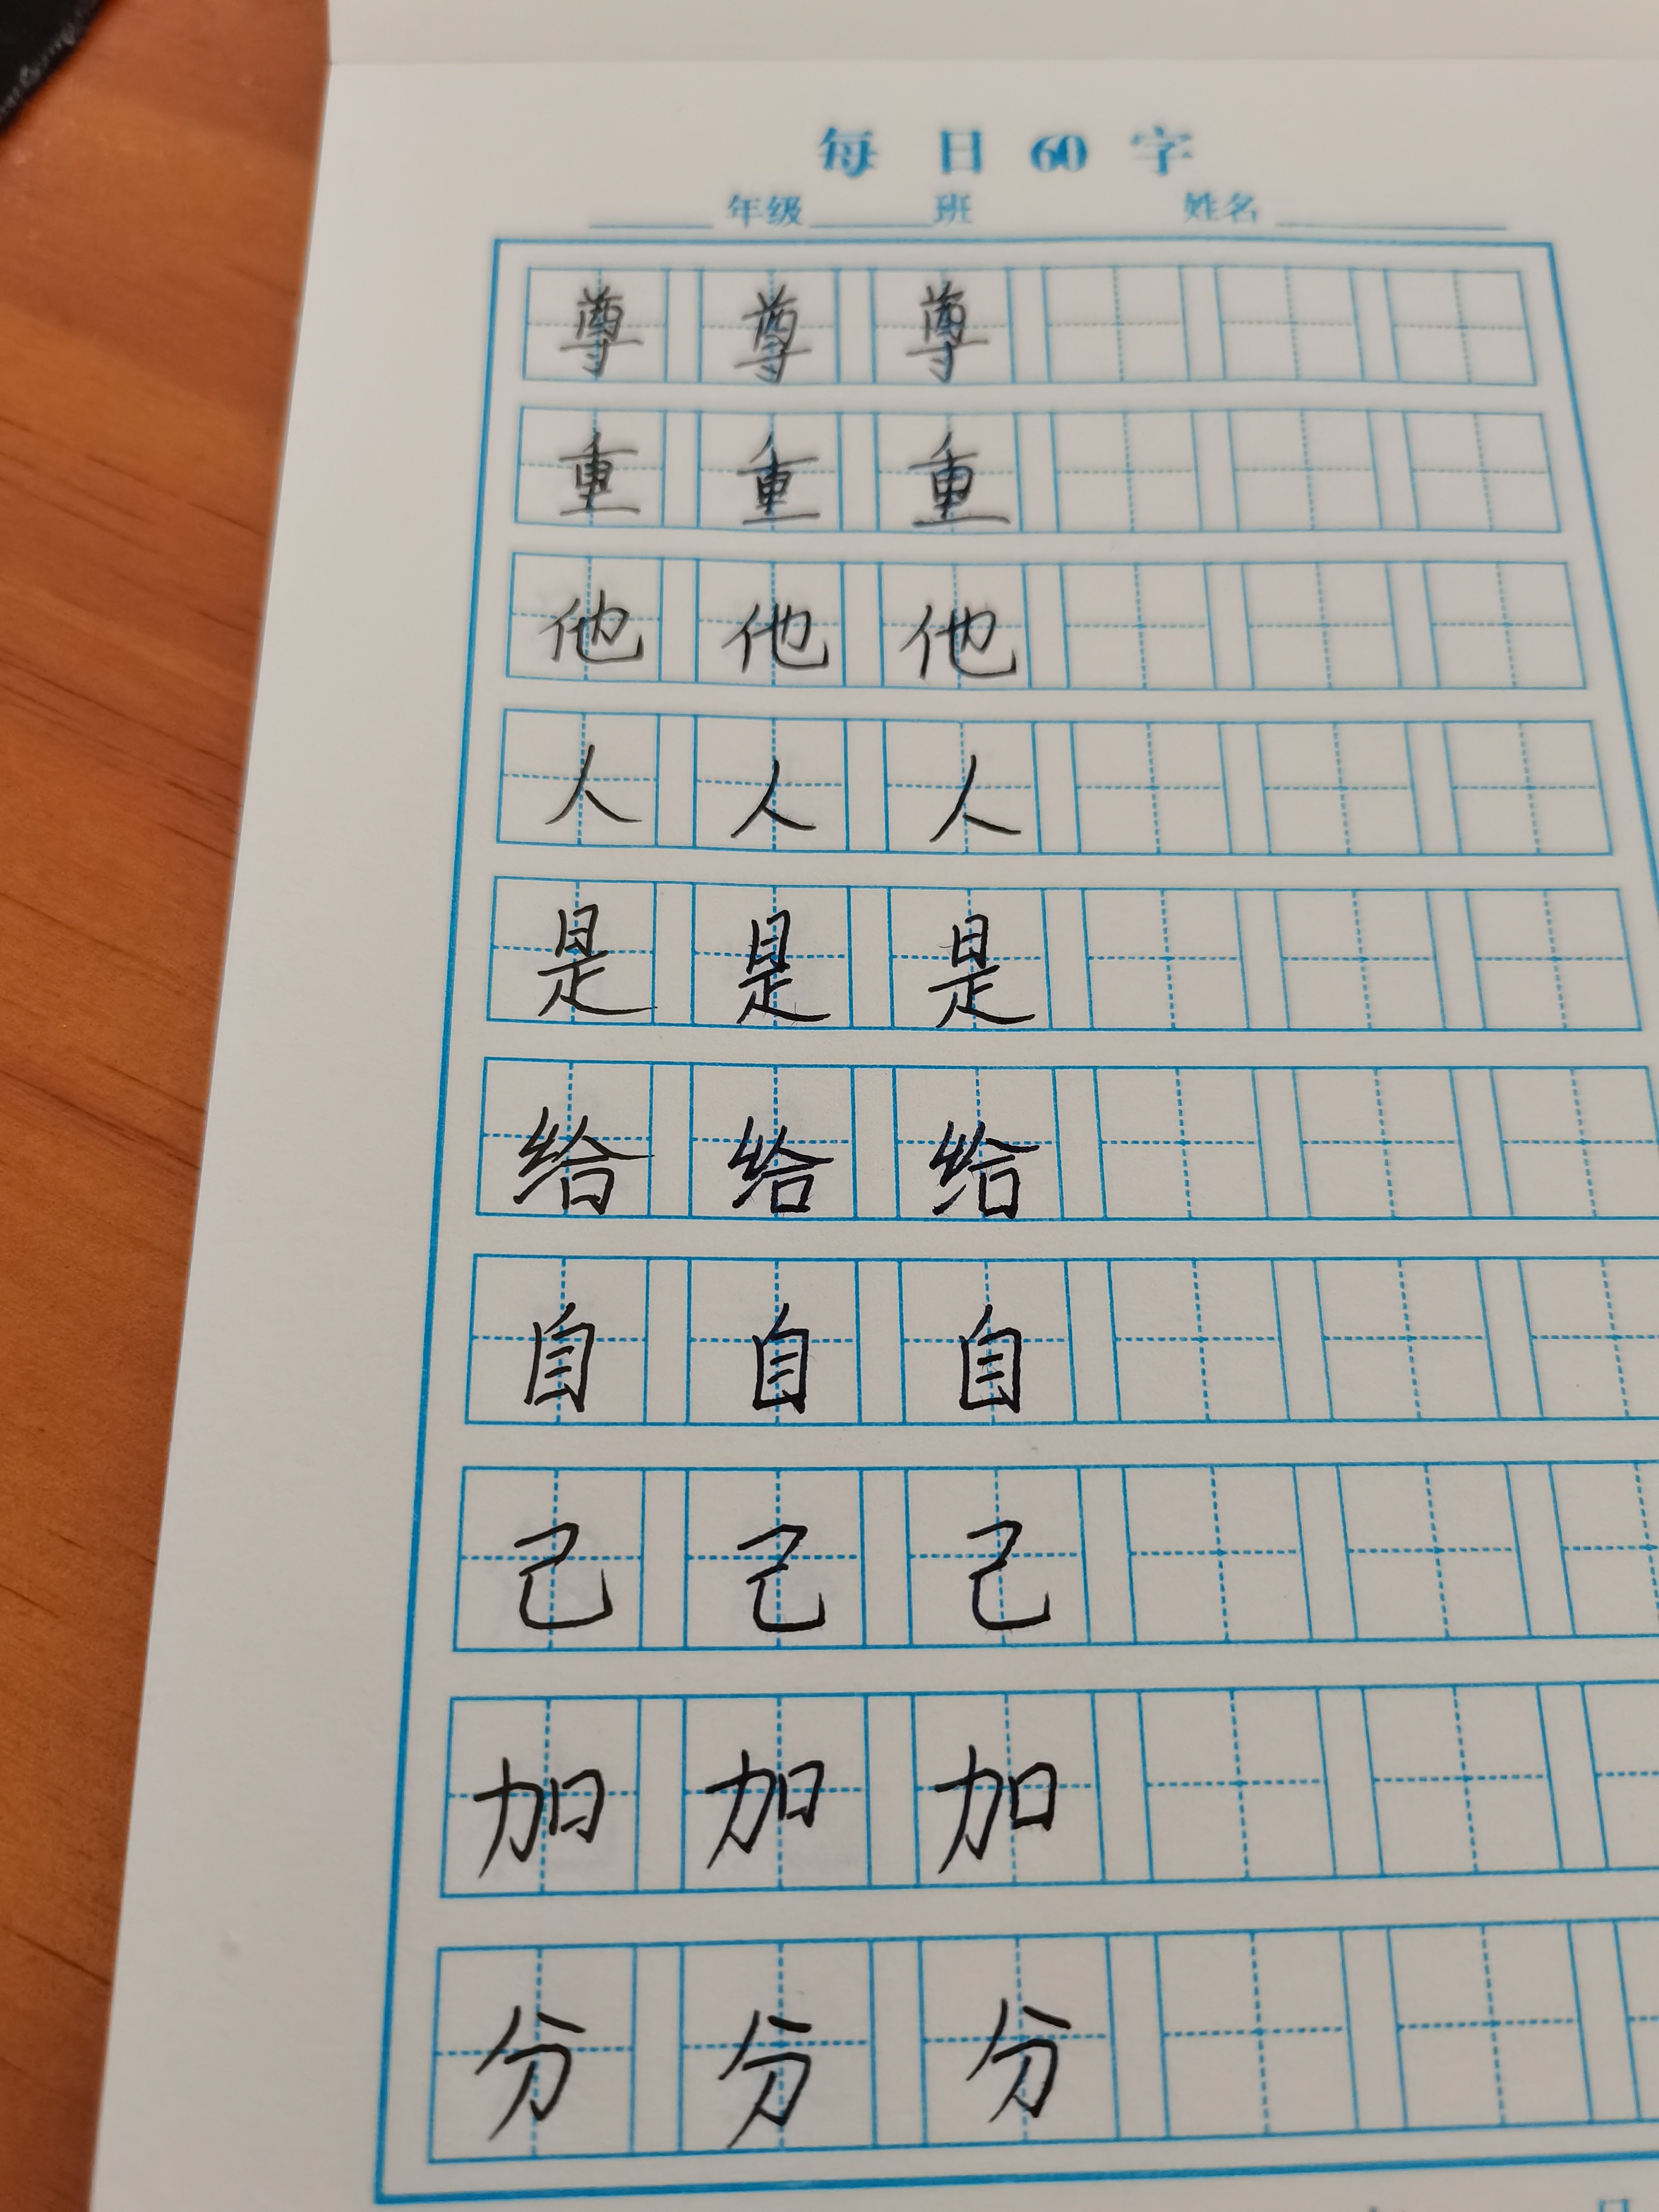 每 日 60 字
年级 班 姓名
尊 尊 尊
重 重 重
他 他 他
人 人 人
是 是 是
给 给 给
自 自 自
己 己 己
加 加 加
分 分 分